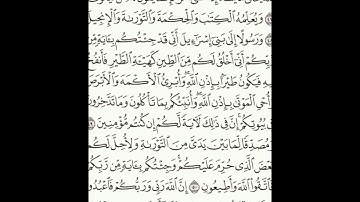 وَيُعَلِّمُهُ ٱلْكِتَٰبَ وَٱلْحِكْمَةَ وَٱلتَّوْرَىٰةَ وَٱلْإِنجِيلَ
وَرَسُولًا إِلَىٰ بَنِىٓ إِسْرَٰٓءِيلَ أَنِّى قَدْ جِئْتُكُم بِـَٔايَةٍ مِّن
رَّبِّكُمْ أَنِّىٓ أَخْلُقُ لَكُم مِّنَ ٱلطِّينِ كَهَيْـَٔةِ ٱلطَّيْرِ فَأَنفُخُ
فِيهِ فَيَكُونُ طَيْرًۢا بِإِذْنِ ٱللَّهِ وَأُبْرِئُ ٱلْأَكْمَهَ وَٱلْأَبْرَصَ
وَأُحْىِ ٱلْمَوْتَىٰ بِإِذْنِ ٱللَّهِ وَأُنَبِّئُكُم بِمَا تَأْكُلُونَ وَمَا تَدَّخِرُونَ
فِى بُيُوتِكُمْ إِنَّ فِى ذَٰلِكَ لَـَٔايَةً لَّكُمْ إِن كُنتُم مُّؤْمِنِينَ ٤٩
وَمُصَدِّقًا لِّمَا بَيْنَ يَدَىَّ مِنَ ٱلتَّوْرَىٰةِ وَلِأُحِلَّ لَكُم
بَعْضَ ٱلَّذِى حُرِّمَ عَلَيْكُمْ وَجِئْتُكُم بِـَٔايَةٍ مِّن رَّبِّكُمْ
فَٱتَّقُوا۟ ٱللَّهَ وَأَطِيعُونِ ٥٠ إِنَّ ٱللَّهَ رَبِّى وَرَبُّكُمْ فَٱعْبُدُو